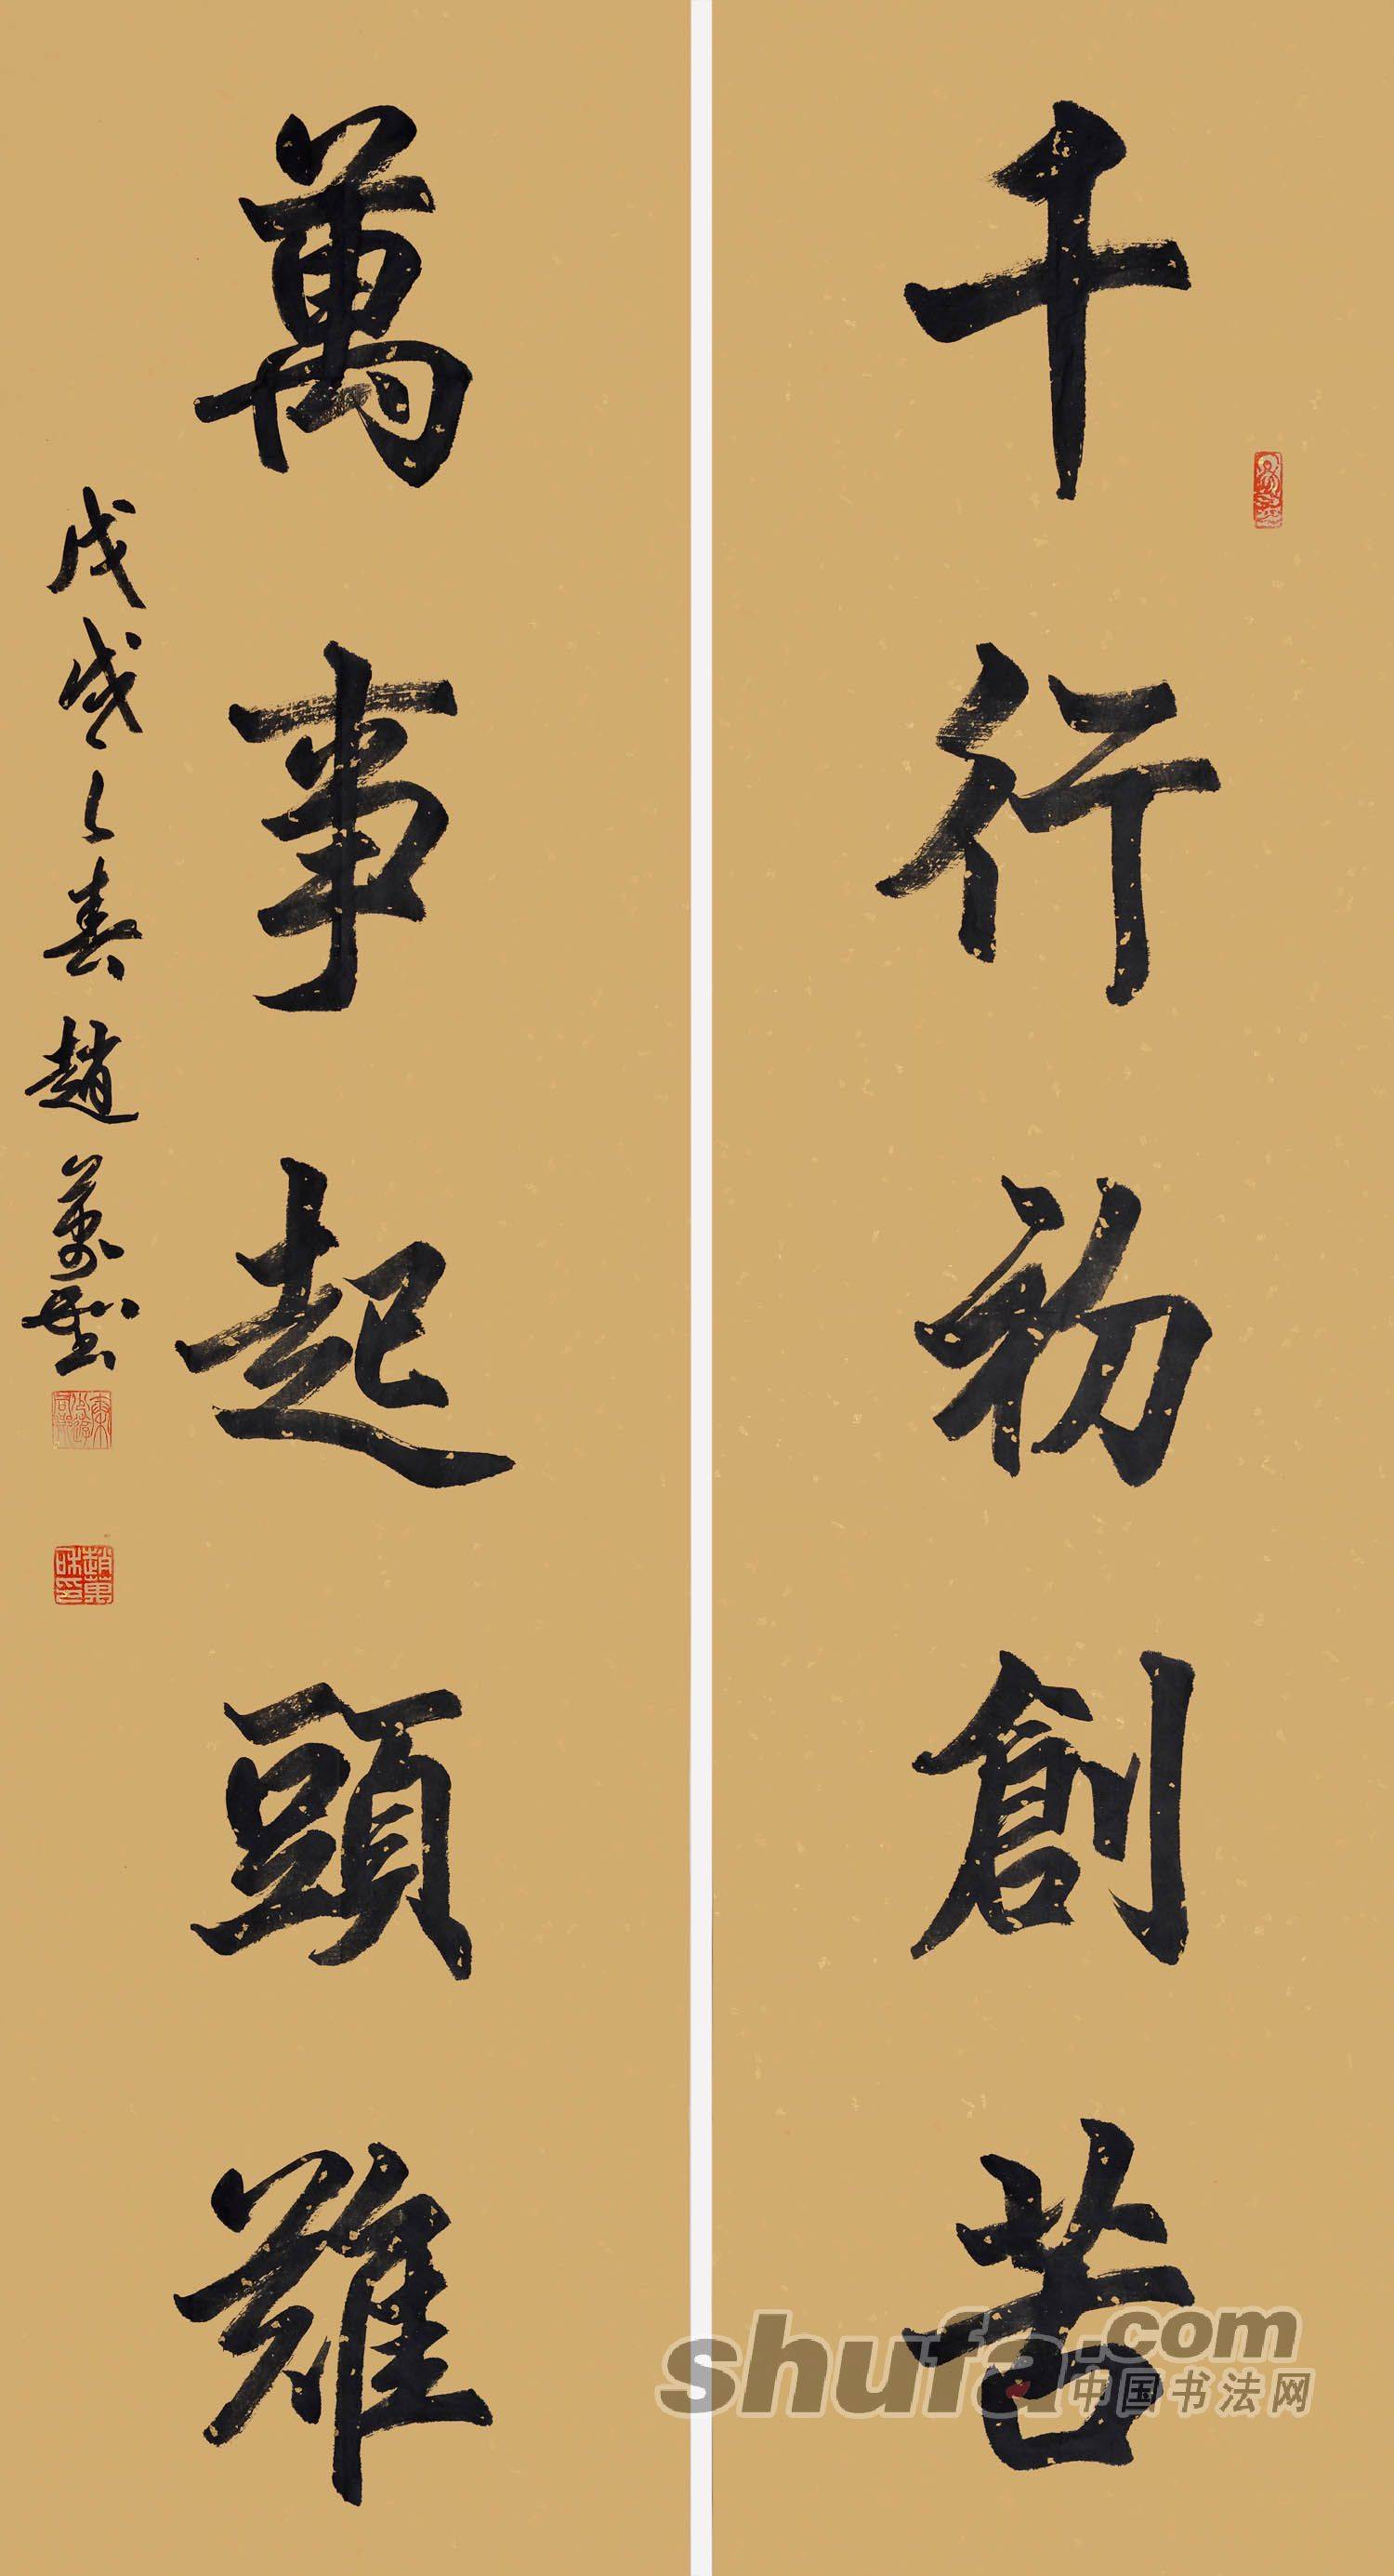 千行初創苦
萬事起頭難
戊戌之春趙萬
shufa.com
中国书法网